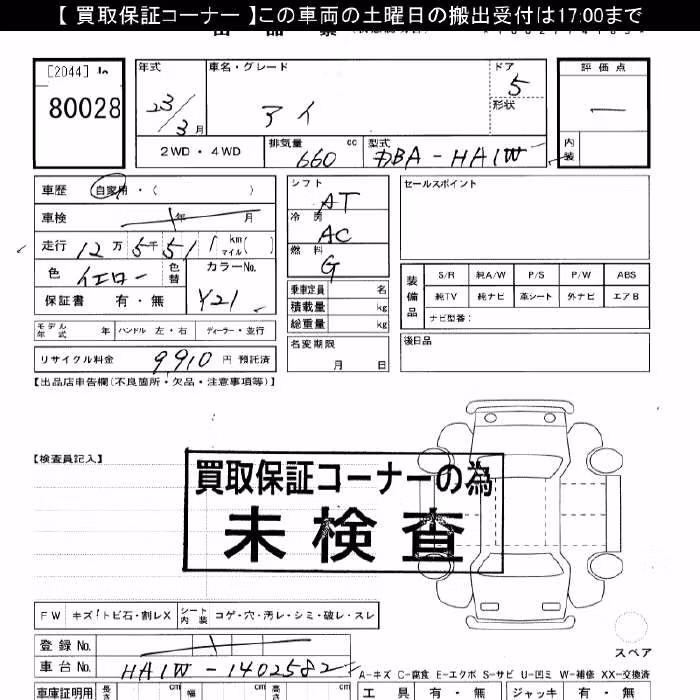 【 買取保証コーナー 】この車両の土曜日の搬出受付は17:00まで
[2044]
80028
年式
車名・グレード
ドア
評価点
23/3月
アイ
5
形状
2WD・4WD
排気量
660
cc
型式
DBA-HA1W
内装
車歴
自家用・( )
シフト
AT
セールスポイント
車検
年 月
冷房
AC
走行
12万5千51
km
マイル
( )
燃料
G
色
イエロー
色替
カラーNo.
Y21
乗車定員 名
積載量 kg
総重量 kg
保証書 有・無
装備品
S/R 純A/W P/S P/W ABS
純TV 純ナビ 革シート 外ナビ エアB
ナビ型番:
モデル年式 年 ハンドル 左・右 ディーラー・並行
名変期限
月 日
後日品
リサイクル料金 9910 円 預託済
【出品店申告欄(不良箇所・欠品・注意事項等)】
【検査員記入】
買取保証コーナーの為
未検査
FW キズ!トビ石・割レX シート内装 コゲ・穴・汚レ・シミ・破レ・スレ
スペア
登録 No.
車台 No. HA1W-1402582
A-キズ C-腐食 E-エクボ S-サビ U-凹ミ W-補修 XX-交換済
車庫証明用 長さ cm 幅 cm 高 cm
工具 有・無 ジャッキ 有・無